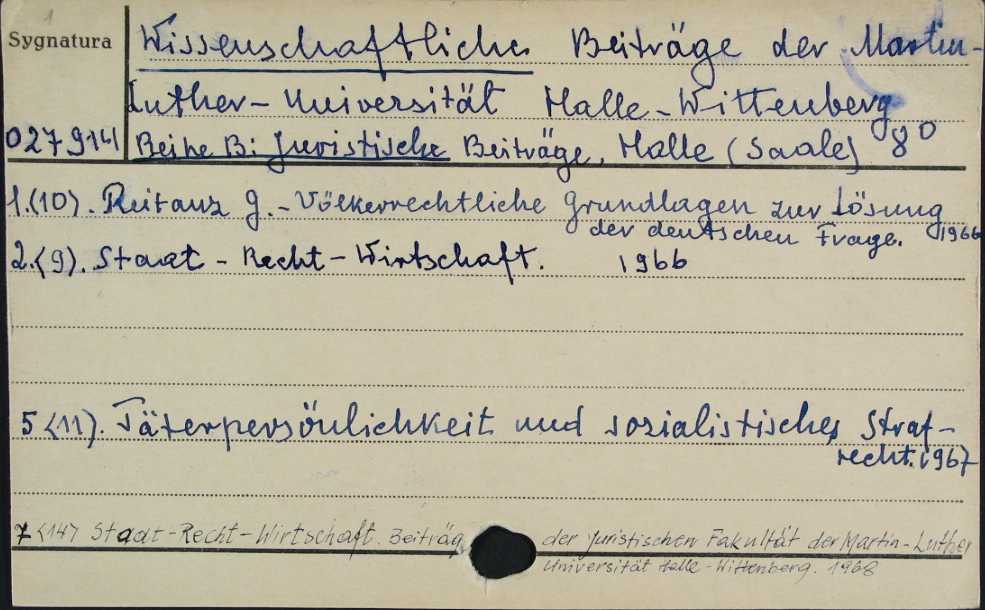 1
Sygnatura
Wissenschaftliche Beiträge der Martin-
Luther-Universität Halle-Wittenberg
027914
Reihe B: Juristische Beiträge, Halle (Saale) 8°
1.<10>. Reitanz G. - Völkerrechtliche Grundlagen zur Lösung
der deutschen Frage. 1966
2.<9>. Staat - Recht - Wirtschaft. 1966
5<11>. Täterpersönlichkeit und sozialistisches Straf-
recht. 1967
7<14> Staat-Recht-Wirtschaft. Beiträg der Juristischen Fakultät der Martin-Luther
Universität Halle-Wittenberg. 1968